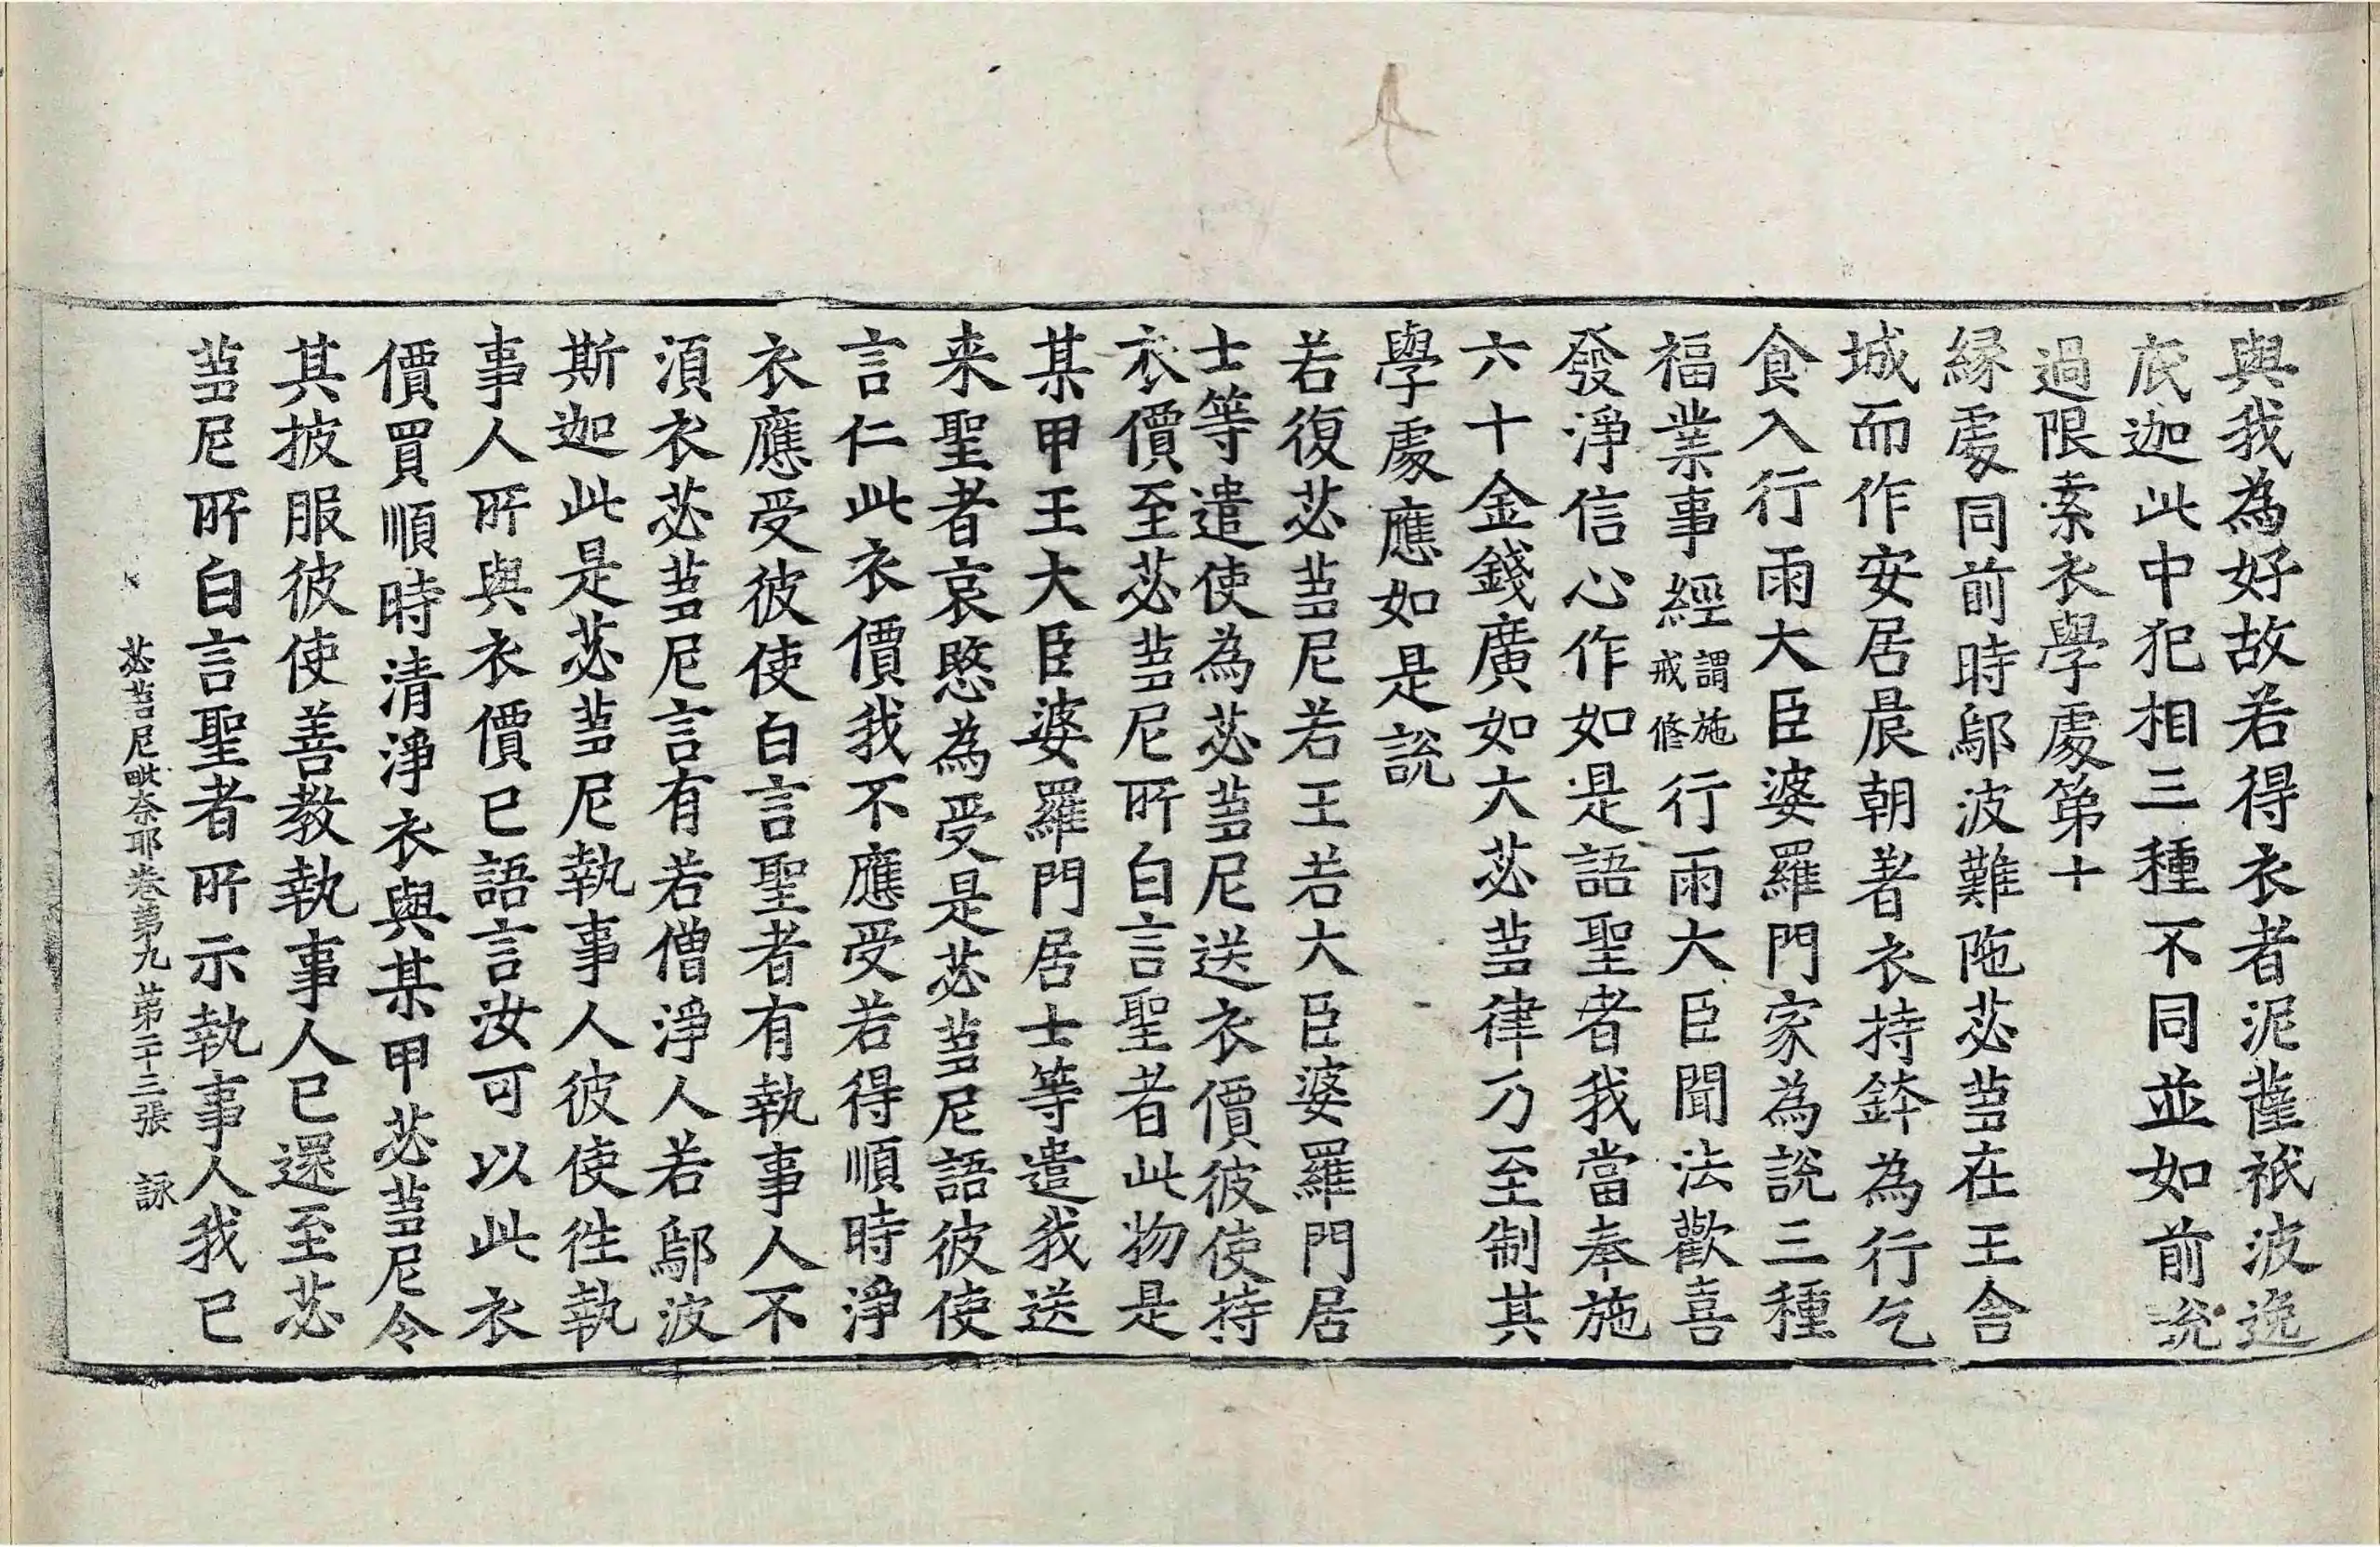 與我為好故若得衣者泥薩祇波逸
底迦此中犯相三種不同並如前說
過限索衣學處第十
緣處同前時鄔波難陁苾蒭在王舍
城而作安居晨朝著衣持鉢為行乞
食入行雨大臣婆羅門家為說三種
福業事經謂施戒修行雨大臣聞法歡喜
發淨信心作如是語聖者我當奉施
六十金錢廣如大苾蒭律乃至制其
學處應如是說
若復苾蒭尼若王若大臣婆羅門居
士等遣使為苾蒭尼送衣價彼使持
衣價至苾蒭尼所白言聖者此物是
某甲王大臣婆羅門居士等遣我送
来聖者哀愍為受是苾蒭尼語彼使
言仁此衣價我不應受若得順時淨
衣應受彼使白言聖者有執事人不
須衣苾蒭尼言有若僧淨人若鄔波
斯迦此是苾蒭尼執事人彼使徃執
事人所與衣價已語言汝可以此衣
價買順時清淨衣與某甲苾蒭尼令
其披服彼使善教執事人已還至苾
蒭尼所白言聖者所示執事人我已
苾蒭尼毗奈耶卷第九 第二十三張 詠